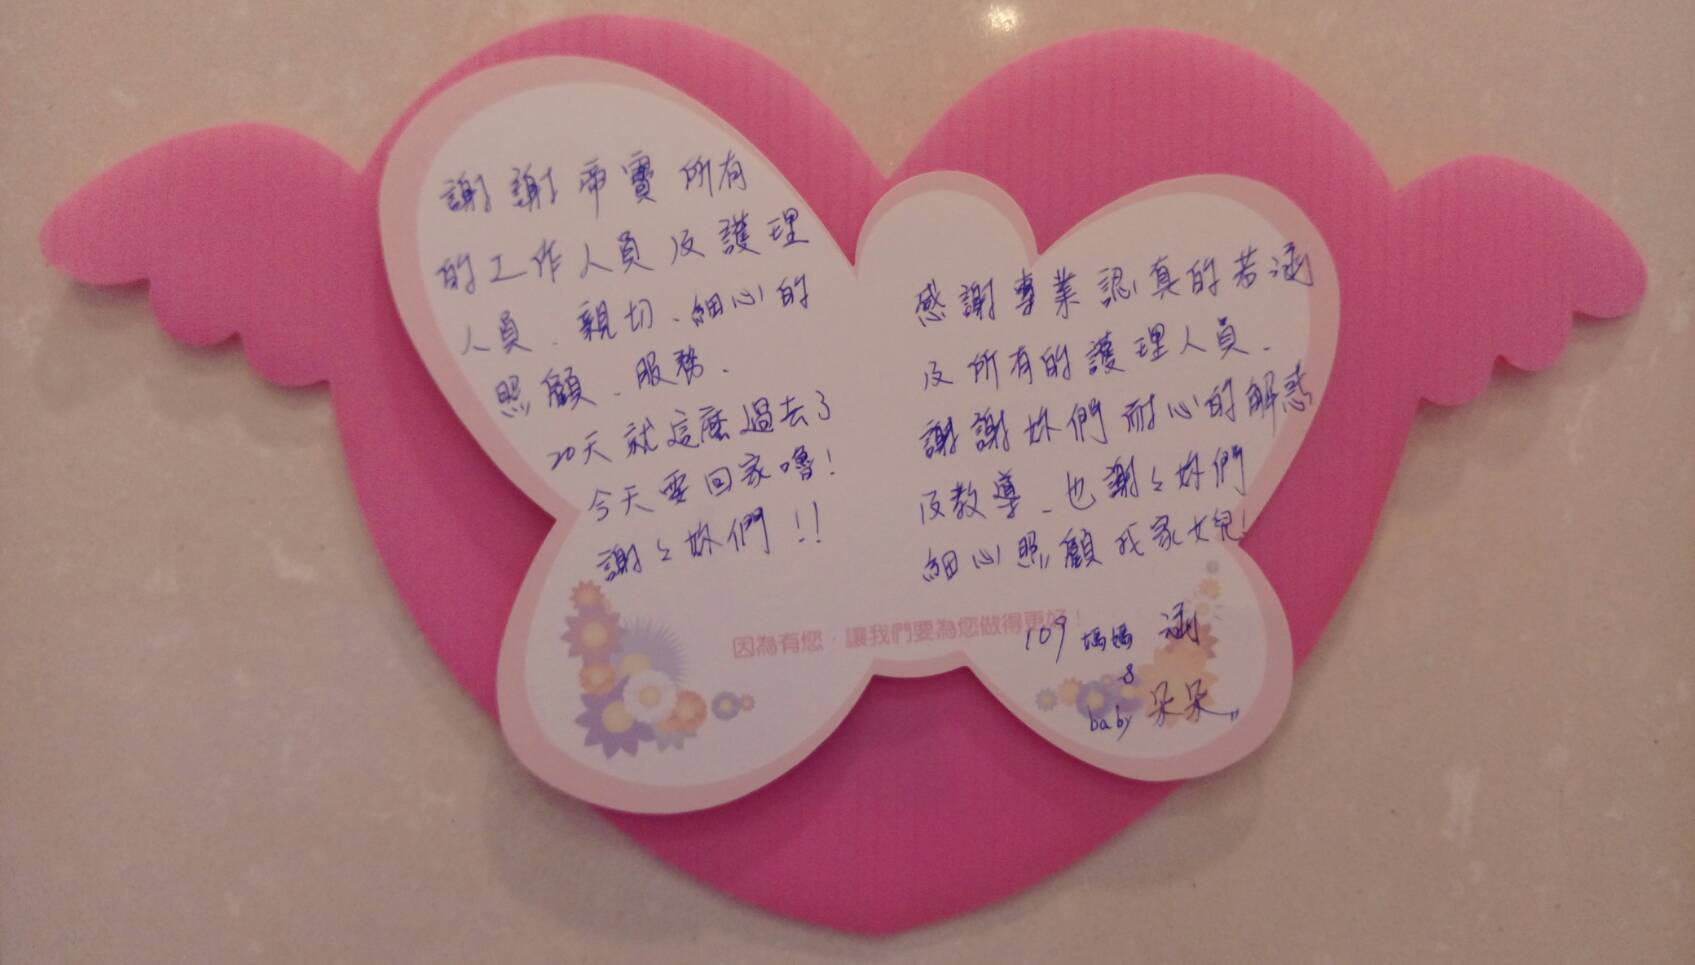 謝謝帝寶所有
的工作人員及護理
人員、親切、細心的
照顧、服務、
20天就這麼過去了
今天要回家嚕!
謝々妳們!!
感謝專業認真的若涵
及所有的護理人員、
謝謝妳們耐心的解惑
及教導、也謝々妳們
細心照顧我家女兒!
因為有您,讓我們要為您做得更好!
109 媽媽 涵
&
baby 朵朵